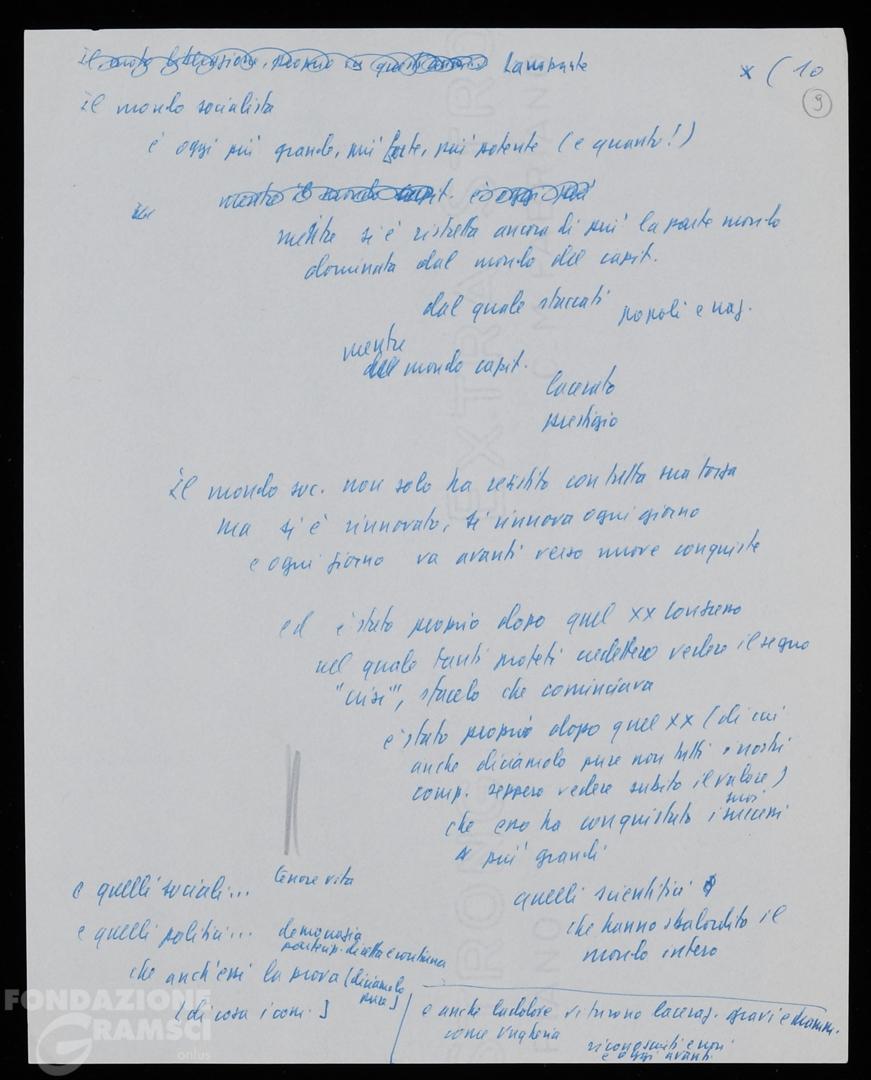 * (10
9
Il mondo socialista
è oggi più grande, più forte, più potente (e quanto!)
mentre si è ristretta ancora di più la parte mondo
dominata dal mondo del capit.
dal quale staccati popoli e naz.
mentre
mondo capit.
lacerato
prestigio
Il mondo soc. non solo ha resistito con tutta sua forza
ma si è rinnovato, si rinnova ogni giorno
e ogni giorno va avanti verso nuove conquiste
ed è stato proprio dopo quel XX Congresso
nel quale tanti profeti credettero vedere il segno
"crisi", sfacelo che cominciava
è stato proprio dopo quel XX (di cui
anche diciamolo pure non tutti i nostri
comp. seppero vedere subito il valore)
che esso ha conquistato i suoi successi
più grandi
quelli scientifici
che hanno sbalordito il
mondo intero
e quelli sociali... tenore vita
e quelli politici... democrazia
partecip. diretta e continua
che anch'essi la prova (diciamolo
pure)
[di cosa i com.]
e anche laddove vi furono laceraz. gravi e dramm.
come Ungheria
e oggi avanti
FONDAZIONE
GRAMSCI
onlus